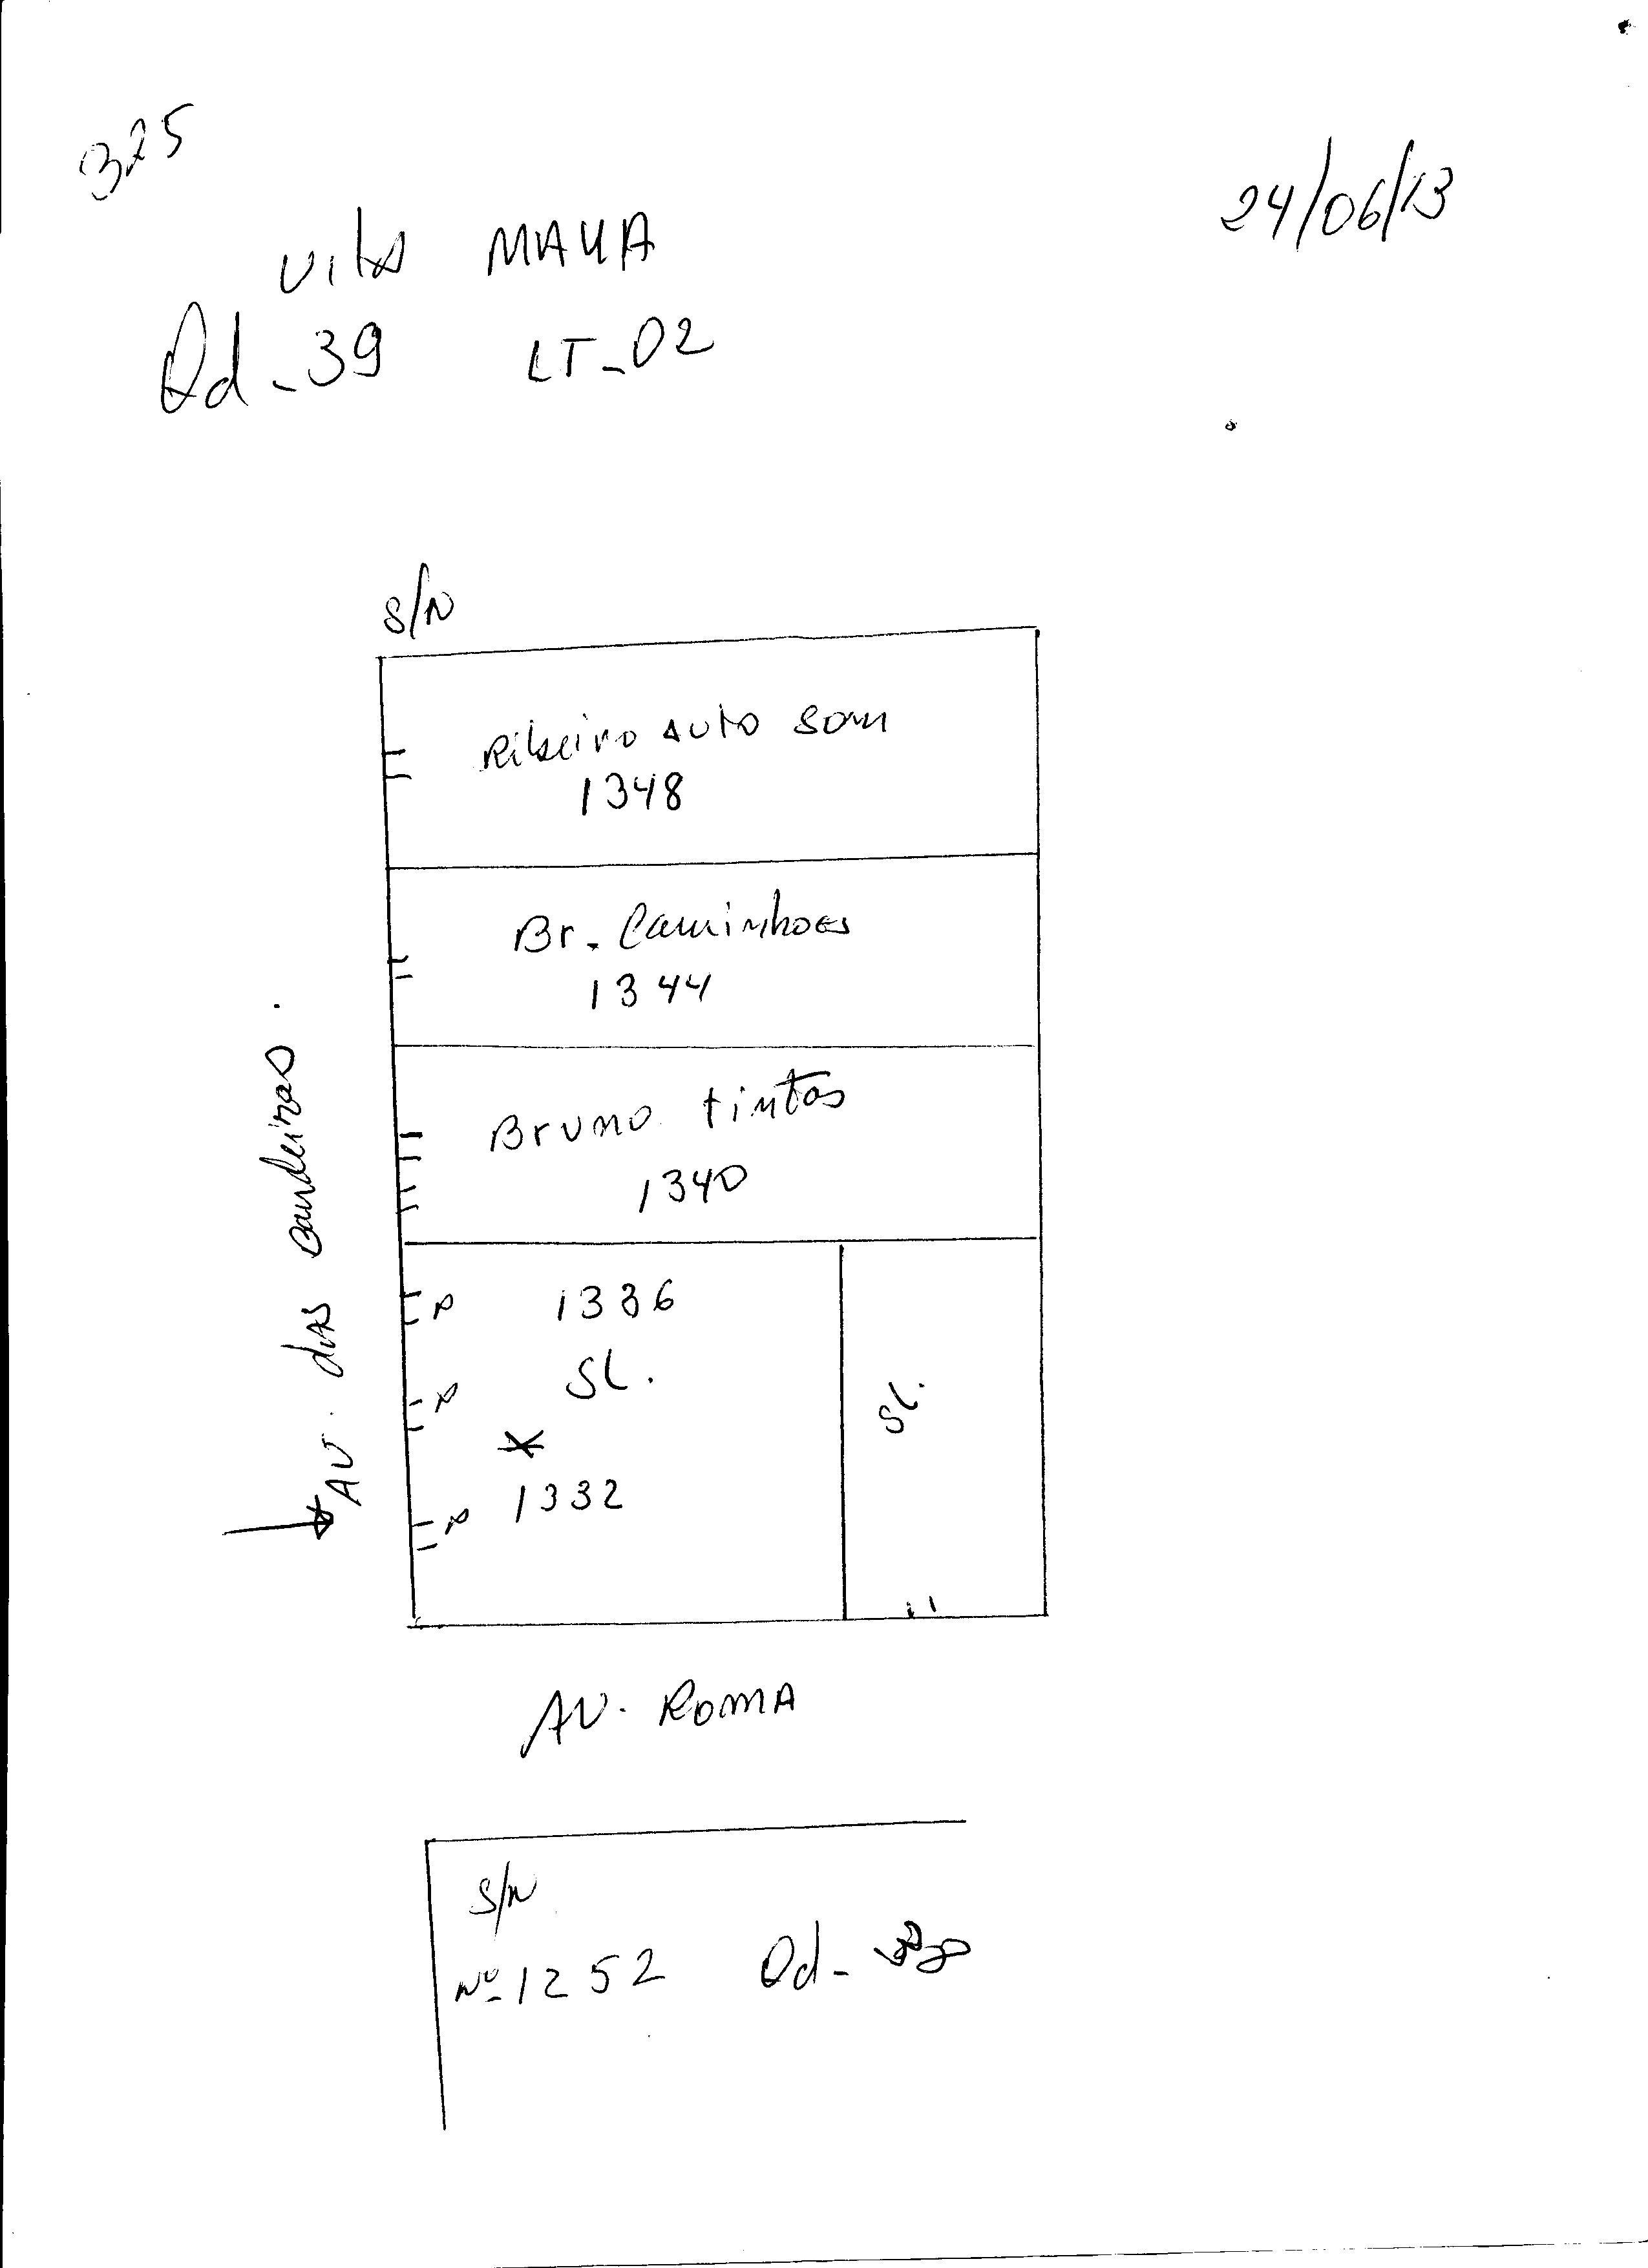 325
24/06/13
Vila MAUA
Qd - 39 LT - 02
S/N
Ribeiro Auto Som
1348
Br. Caminhoes
1344
Bruno tintas
1340
Av. das bandeiras.
N 1336
N SL.
N 1332
SL.
AV. ROMA
S/N
Nº 1252 Qd -